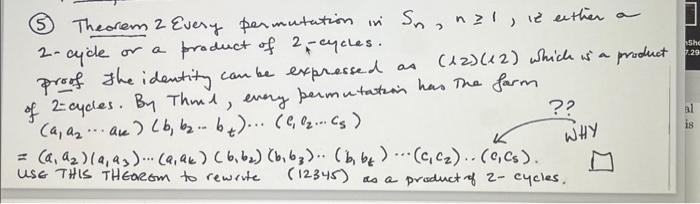 ⑤ Theorem 2 Every permutation in Sn, n ≥ 1, is either a
2-cycle or a product of 2-cycles.
proof The identity can be expressed as (12)(12) which is a product
of 2-cycles. By Thm 1, every permutation has the form
(a₁ a₂ ... aₖ)(b₁ b₂ ... bₜ)...(c₁ c₂ ... cₛ)
??
WHY
= (a₁ a₂)(a₁ a₃)...(a₁ aₖ)(b₁ b₂)(b₁ b₃)..(b₁ bₜ)...(c₁ c₂)..(c₁ cₛ). □
USE THIS THEOREM to rewrite (12345) as a product of 2-cycles.
7.29
al
is